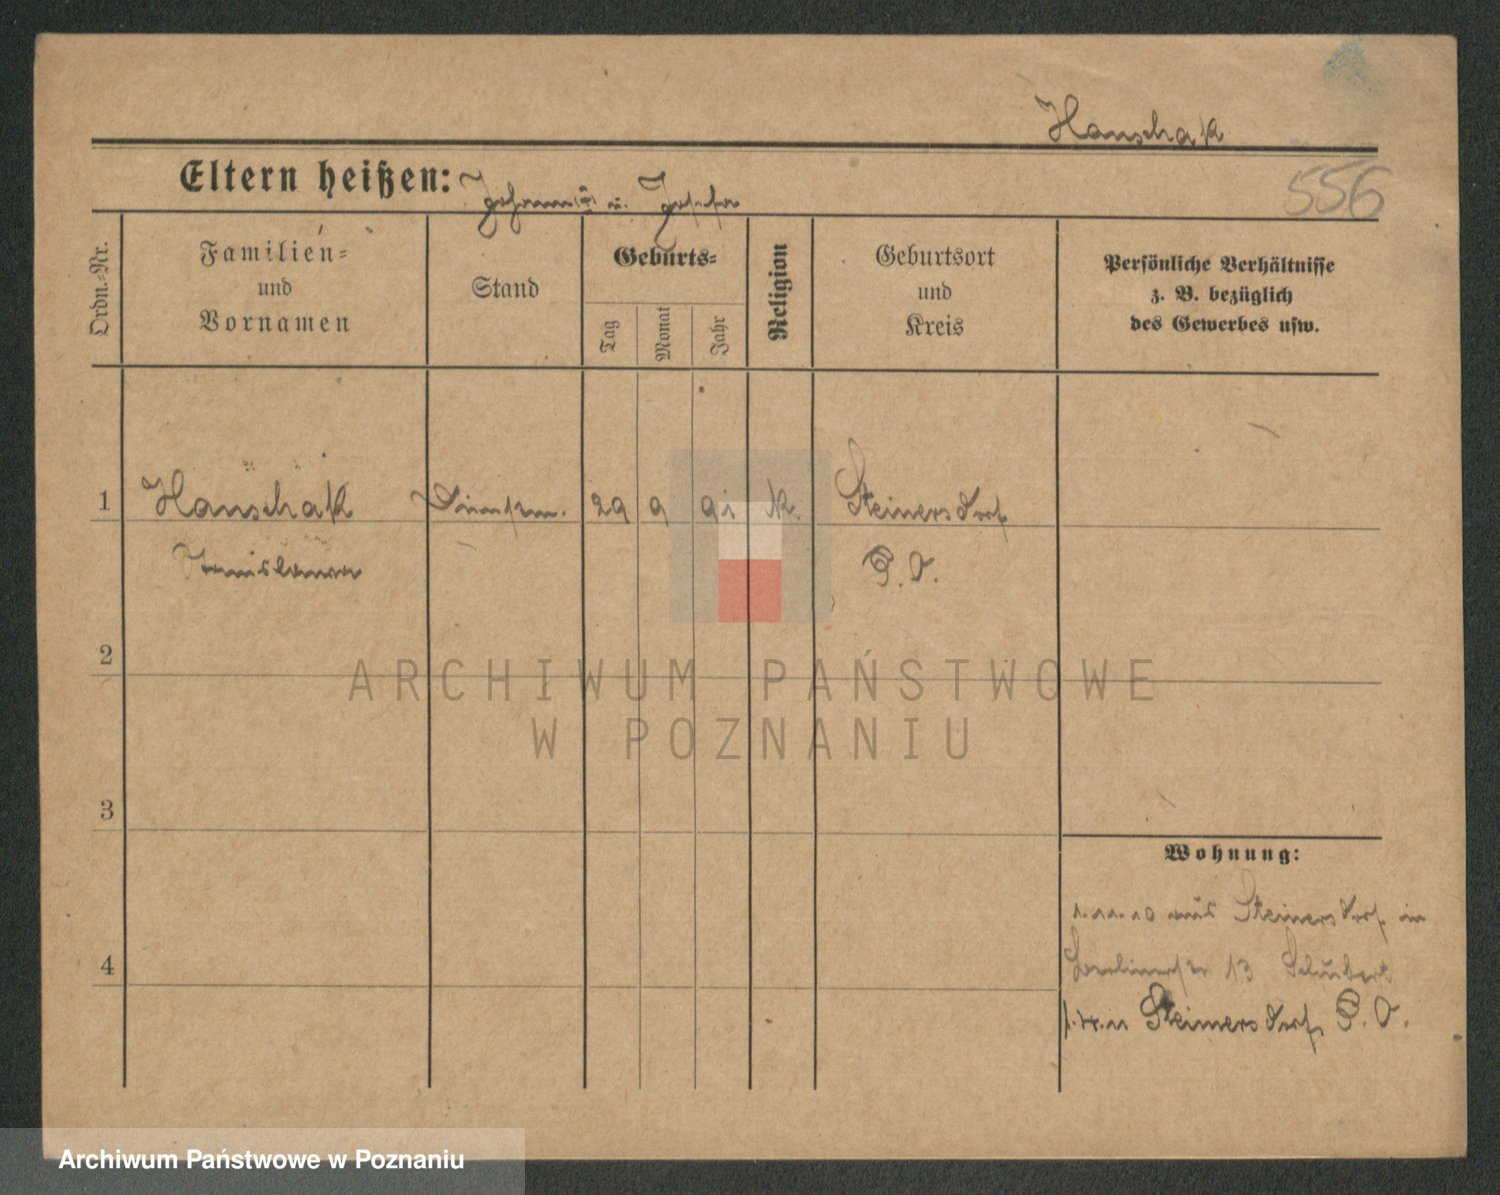 Hanschak
Eltern heißen: Johann u. Josefa
556
Ordn.-Nr.
Familien-
und
Vornamen
Stand
Geburts-
Tag
Monat
Jahr
Religion
Geburtsort
und
Kreis
Persönliche Verhältnisse
z. B. bezüglich
des Gewerbes usw.
1 Hanschak 29 9 91 K. Steinersdorf
Stanislawa P. O.
2
3
4
Wohnung:
1.11.10 aus Steinersdorf in
Berlinerstr 13 Schubert
1.4.11 Steinersdorf P. O.
ARCHIWUM PAŃSTWOWE
W POZNANIU
Archiwum Państwowe w Poznaniu